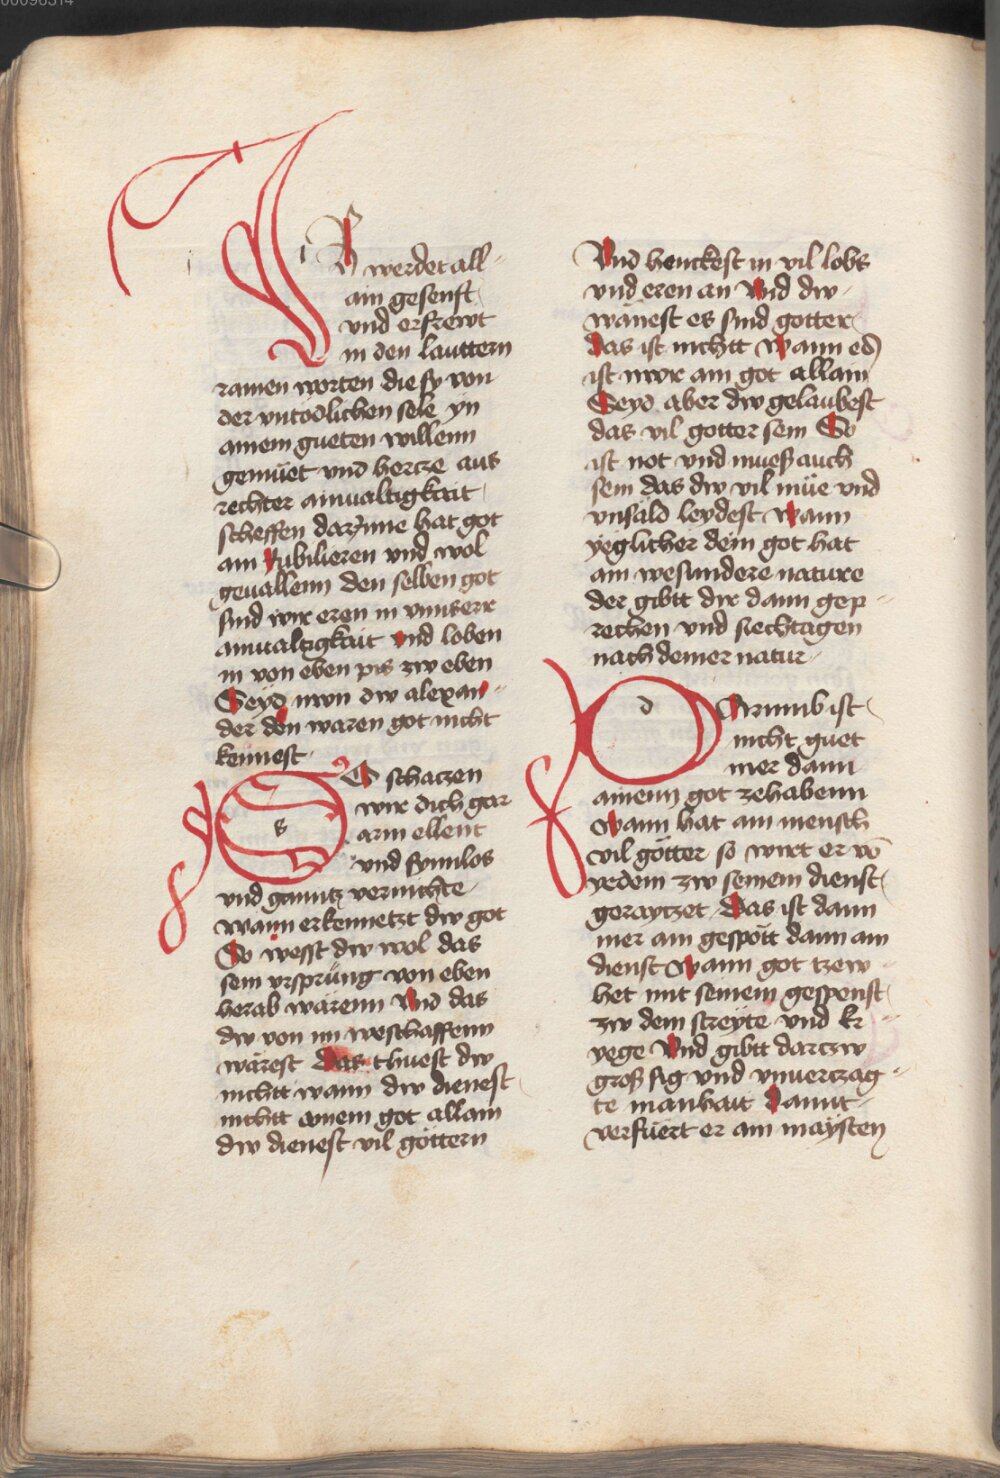 00096314
IR werdet all-
ain gesenft
vnd erfrewt
in den lauttern
rainen worten die sy von
der vntodlichen sele yn
ainem gueten willenn
gemüet vnd hercze aus
rechter ainualtigkait
scheffen darynne hat got
ain Jubilieren vnd wol
geuallenn den selben got
sind wir eren in vnnserr
ainualtigkait vnd loben
in von eben pis zw eben
Seyd nwn dw alexan-
der den waren got nicht
kennest
SO schaczen
wir dich gar
arm ellent
vnd synnlos
vnd ganntz vernichte
wann erkennetzt dw got
So wesst dw wol das
sein vrsprüng von eben
herab wärenn Vnd das
dw von im weschaffenn
wärest Das thuest dw
nichtt wann dw dienest
nichtt ainem got allain
dw dienest vil göttern
Vnd henckest in vil lobs
vnd eren an Vnd dw
wänest es sind götter
Das ist nichtt wann es
ist nwr ain got allain
Seyd aber dw gelaubest
das vil gotter sein So
ist not vnd mueß auch
sein das dw vil müe vnd
vnsäld leydest wann
yeglicher dein got hat
ain wesundere nature
der gibtt dir dann gep-
rechen vnd siechtagen
nach deiner natur
DArumb ist
nicht guet
mer dann
ainenn got zehabenn
wann hat ain mensch
vil götter so wirt er vō
yedem zw seinem dienst
gerayczet Das ist dann
mer ain gespött dann ain
dienst wann got tzew-
het mit seinem gespenst
zw dem streyte vnd kr-
yege Vnd gibtt darczw
groß sig vnd vnuerczag-
te manhait Damit
verfüert er ain maysten